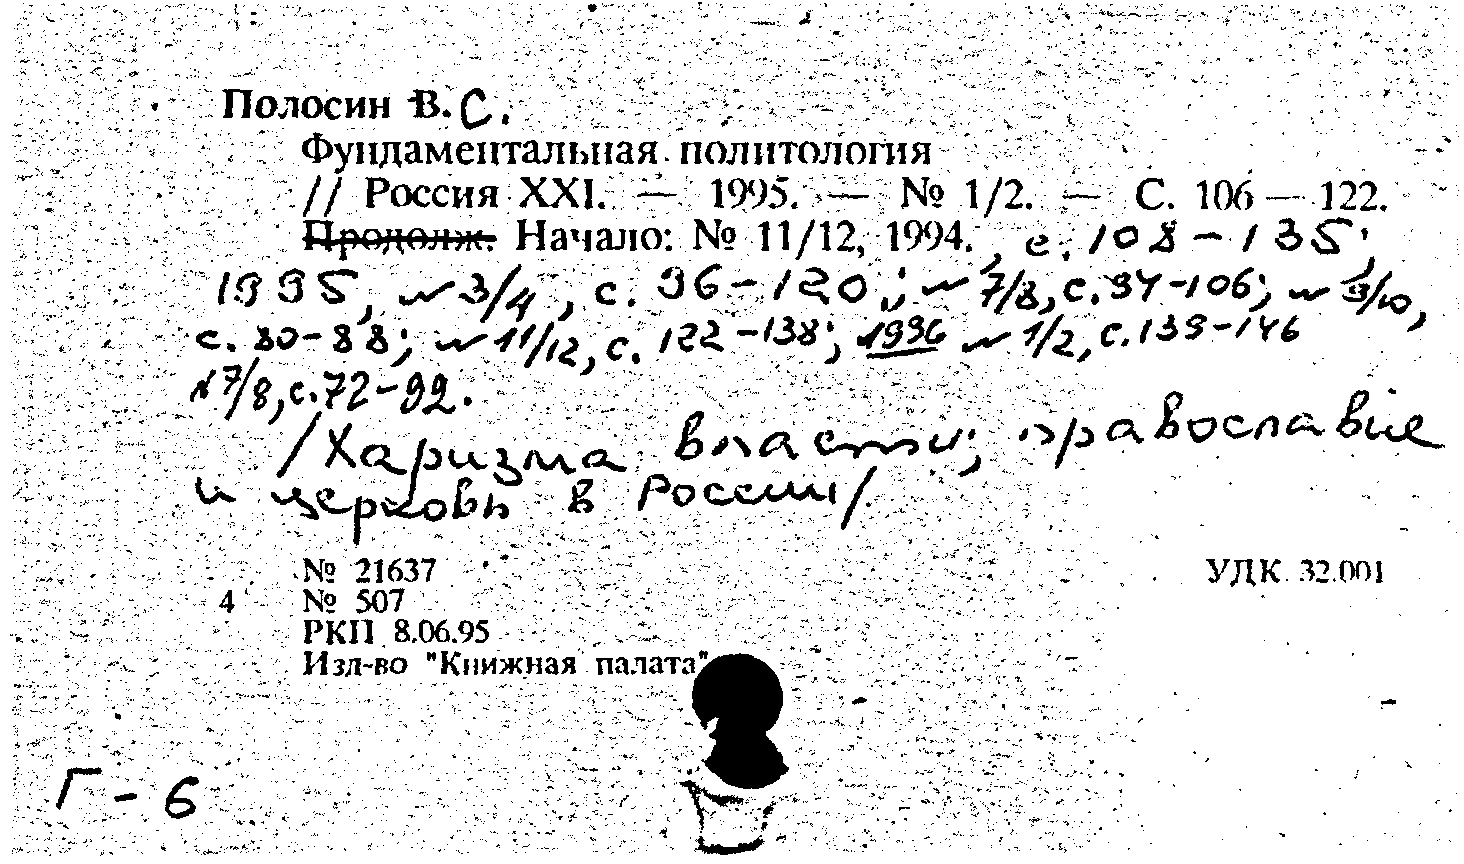 Полосин В.С.
Фундаментальная политология
// Россия XXI. — 1995. — № 1/2. — С. 106 — 122.
Продолж. Начало: № 11/12, 1994., с. 108-135;
1995, № 3/4, с. 96-120; № 7/8, с. 94-106; № 9/10,
с. 80-88; № 11/12, с. 122-138; 1996 № 1/2, с. 139-146
№ 7/8, с. 72-92.
/Харизма власти; православие
и церковь в России/.
№ 21637
УДК 32.001
4 № 507
РКП 8.06.95
Изд-во "Книжная палата"
Г-6